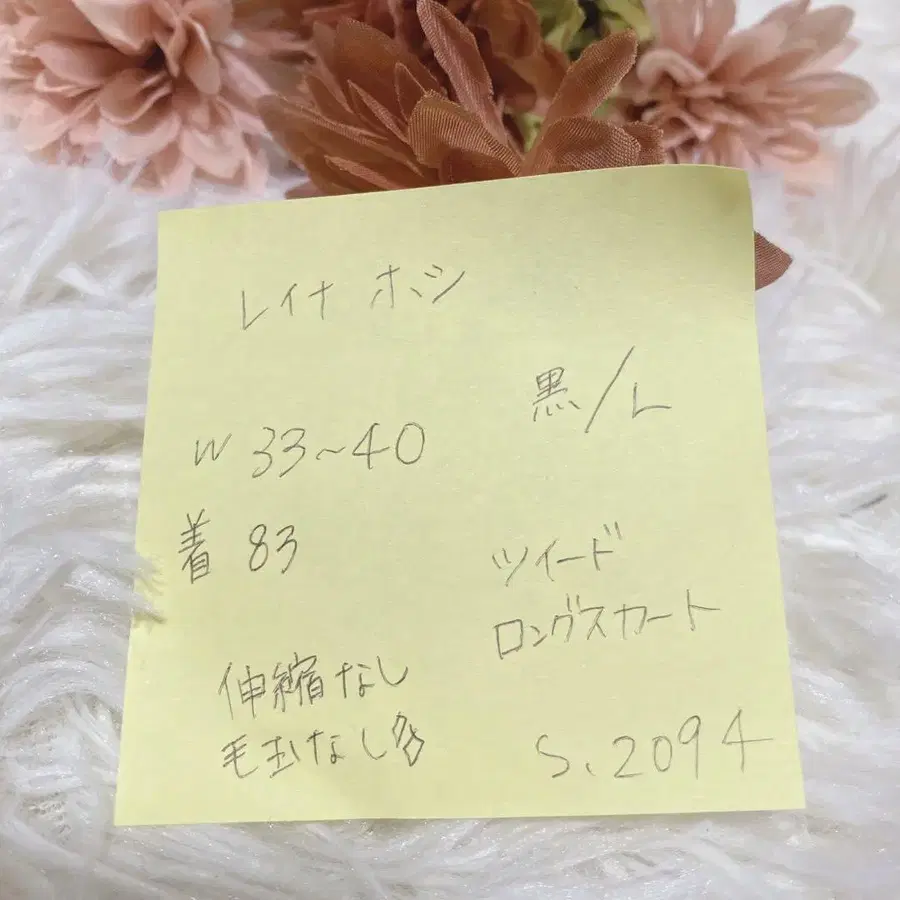 レイナ ホシ
黒/L
W 33~40
着 83
ツイード
ロングスカート
伸縮なし
毛玉なし
S.2094